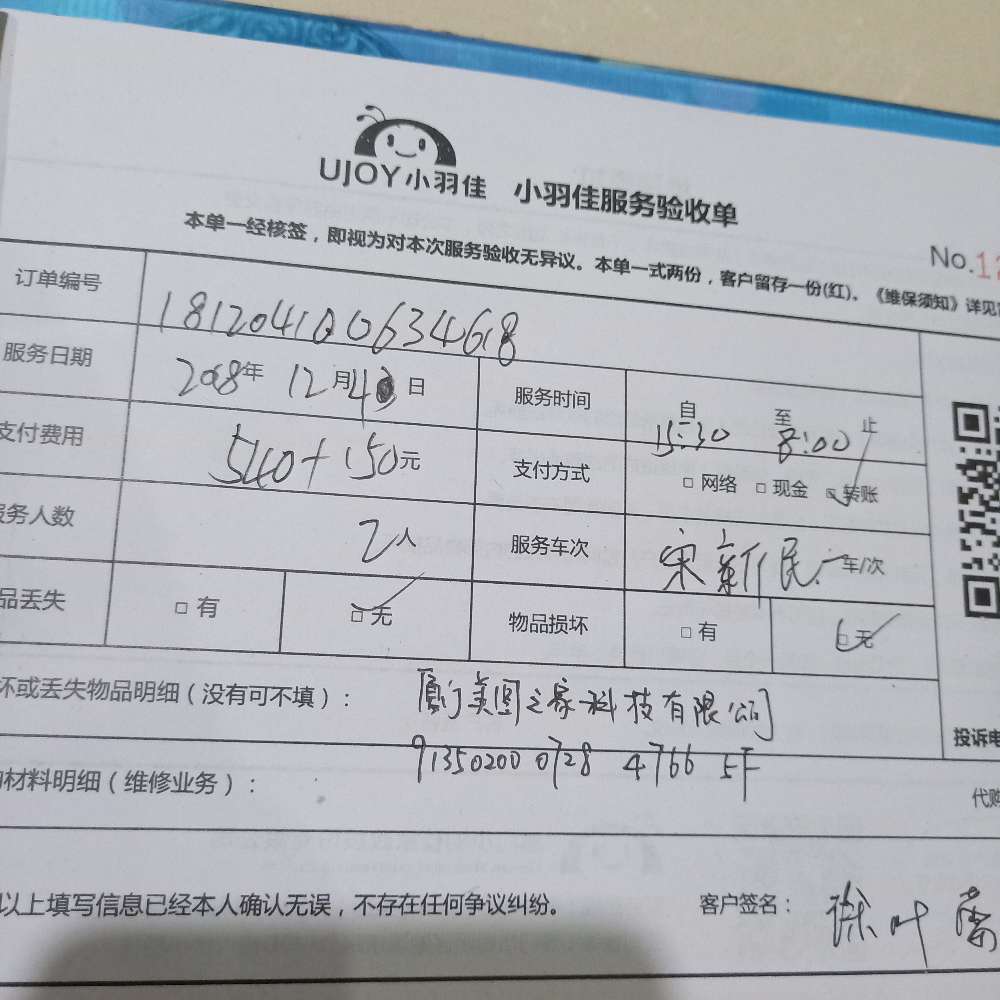 UJOY小羽佳 小羽佳服务验收单
No.12
本单一经核签，即视为对本次服务验收无异议。本单一式两份，客户留存一份(红)。《维保须知》详见
订单编号 181204100634618
服务日期 2018年 12月4日 服务时间 自 15:30 至 8:00 止
支付费用 540+150元 支付方式 □ 网络 □ 现金 □ 转账
服务人数 2人 服务车次 宋新民 车/次
品丢失 □ 有 □ 无 物品损坏 □ 有 □ 无
坏或丢失物品明细（没有可不填）： 厦门美图之家科技有限公司
91350200 0728 4766 5F
投诉电
材料明细（维修业务）： 代购
以上填写信息已经本人确认无误，不存在任何争议纠纷。 客户签名： 徐叶